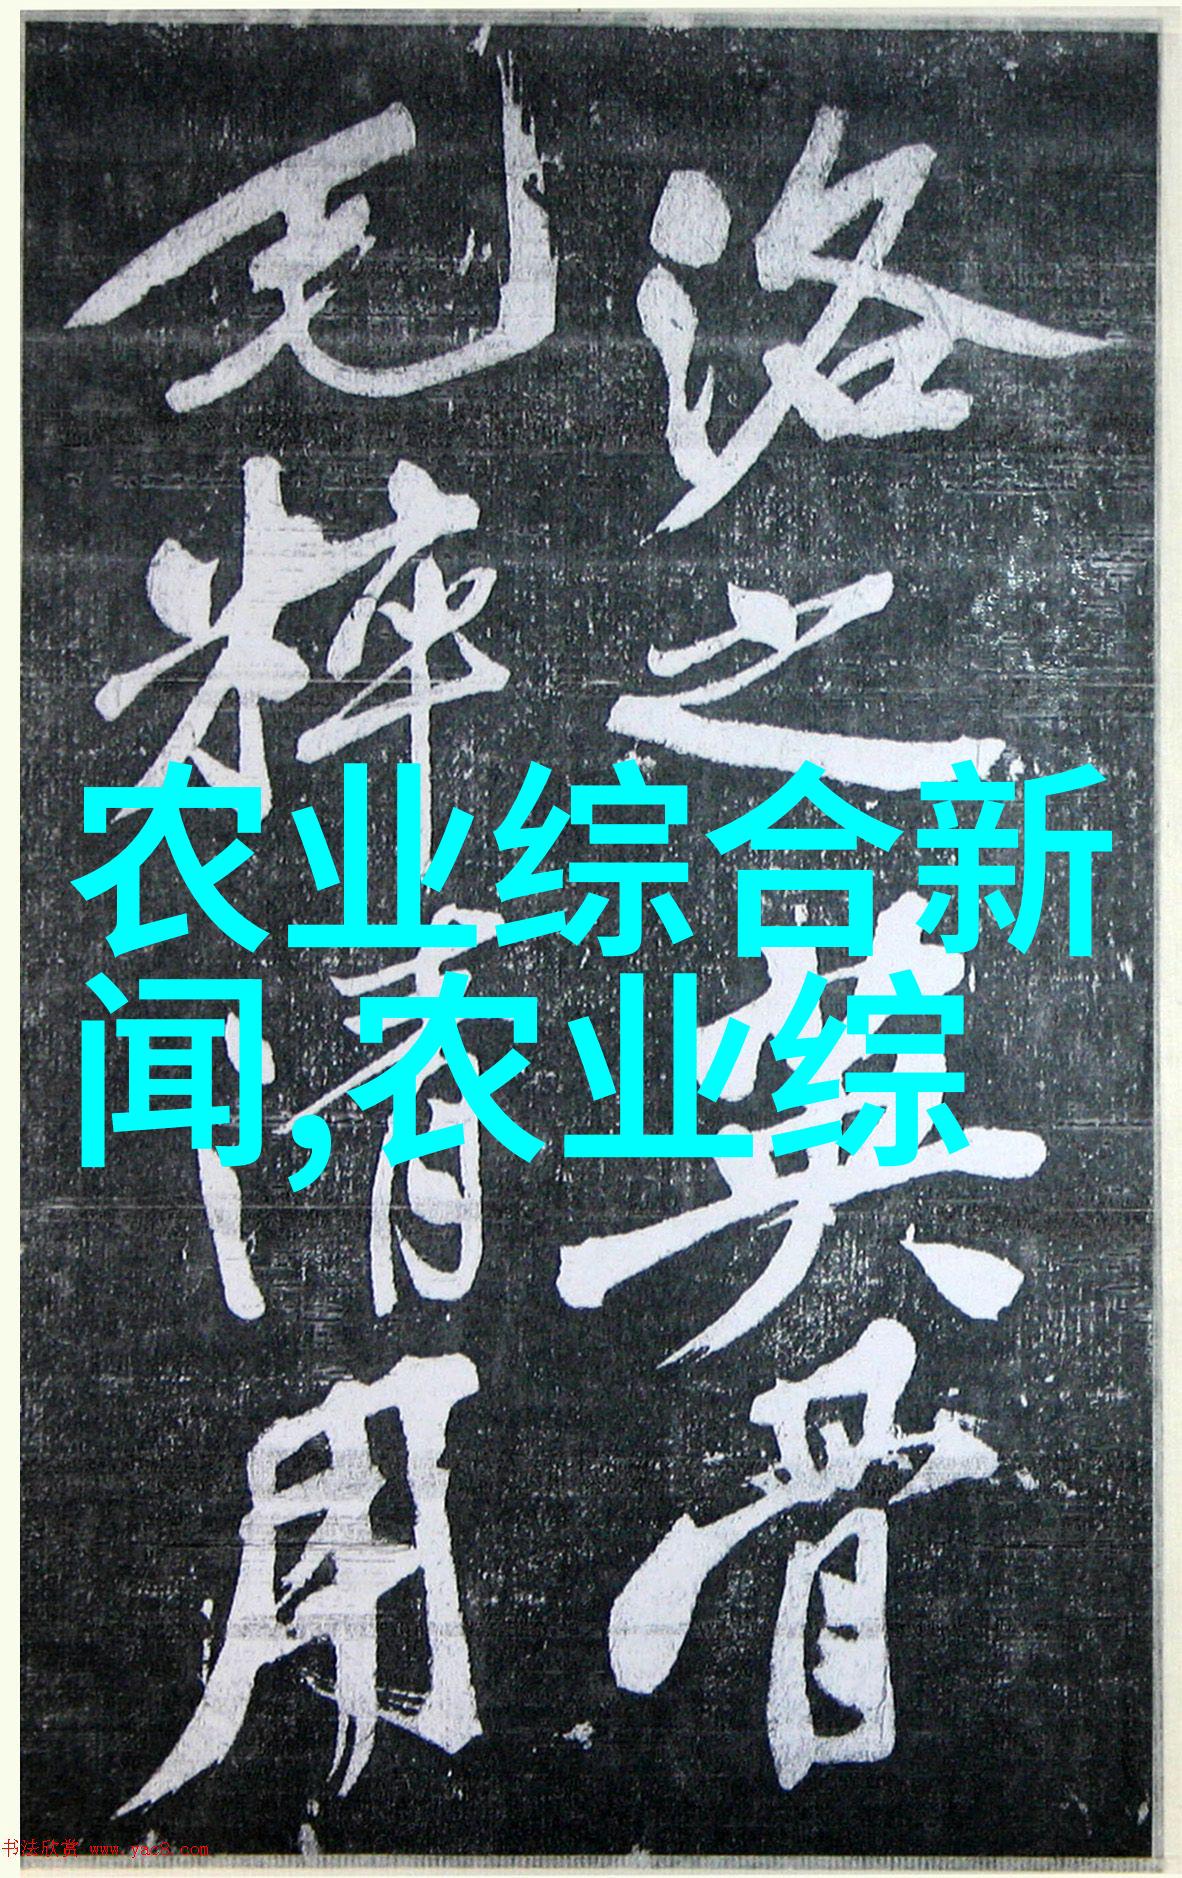 洛之英骨
毛粹清用
农业综合新
闻,农业综
书法欣赏 www.yac8.com